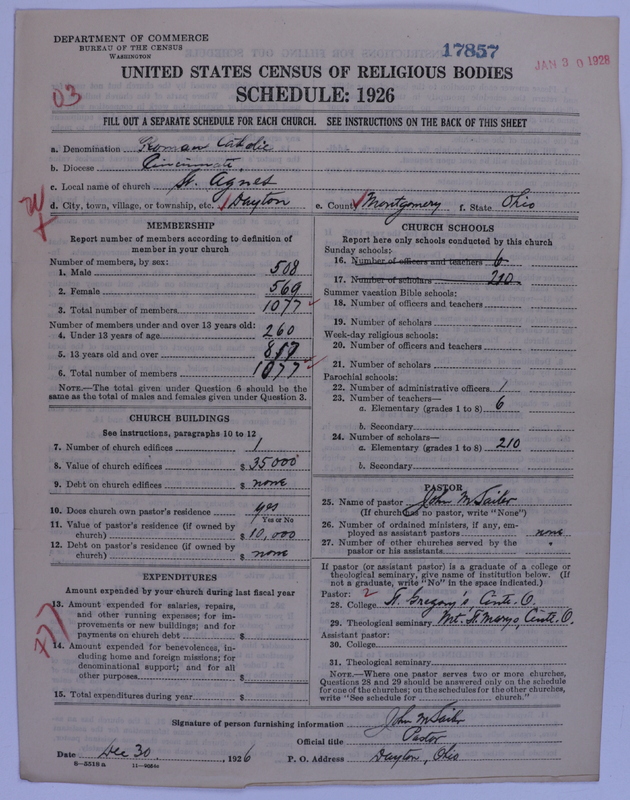 DEPARTMENT OF COMMERCE
BUREAU OF THE CENSUS
WASHINGTON
17857
JAN 30 1928
UNITED STATES CENSUS OF RELIGIOUS BODIES
SCHEDULE: 1926
03
FILL OUT A SEPARATE SCHEDULE FOR EACH CHURCH. SEE INSTRUCTIONS ON THE BACK OF THIS SHEET
a. Denomination Roman Catholic
b. Diocese Cincinnati,
c. Local name of church St. Agnes
d. City, town, village, or township, etc. Dayton e. County Montgomery f. State Ohio
MEMBERSHIP
Report number of members according to definition of
member in your church
Number of members, by sex:
1. Male 508
2. Female 569
3. Total number of members 1077
Number of members under and over 13 years old:
4. Under 13 years of age 260
5. 13 years old and over 817
6. Total number of members 1077
NOTE.—The total given under Question 6 should be the
same as the total of males and females given under Question 3.
CHURCH BUILDINGS
See instructions, paragraphs 10 to 12
7. Number of church edifices 1
8. Value of church edifices $ 35000
9. Debt on church edifices $ none
10. Does church own pastor's residence yes
Yes or No
11. Value of pastor's residence (if owned by
church) $ 10,000
12. Debt on pastor's residence (if owned by
church) $ none
EXPENDITURES
Amount expended by your church during last fiscal year
13. Amount expended for salaries, repairs,
and other running expenses; for im-
provements or new buildings; and for
payments on church debt $
14. Amount expended for benevolences, in-
cluding home and foreign missions; for
denominational support; and for all
other purposes $
15. Total expenditures during year $
CHURCH SCHOOLS
Report here only schools conducted by this church
Sunday schools:
16. Number of officers and teachers 6
17. Number of scholars 210
Summer vacation Bible schools:
18. Number of officers and teachers
19. Number of scholars
Week-day religious schools:
20. Number of officers and teachers
21. Number of scholars
Parochial schools:
22. Number of administrative officers 1
23. Number of teachers—
a. Elementary (grades 1 to 8) 6
b. Secondary
24. Number of scholars—
a. Elementary (grades 1 to 8) 210
b. Secondary
PASTOR
25. Name of pastor John M Sailer
(If church has no pastor, write "None")
26. Number of ordained ministers, if any, em-
ployed as assistant pastors none
27. Number of other churches served by the
pastor or his assistants
If pastor (or assistant pastor) is a graduate of a college or
theological seminary, give name of institution below. (If
not a graduate, write "No" in the space indicated.)
Pastor: 2
28. College St. Gregory's, Cinti. O.
29. Theological seminary Mt. St. Marys, Cinti. O.
Assistant pastor:
30. College
31. Theological seminary
NOTE.—Where one pastor serves two or more churches,
Questions 28 and 29 should be answered only on the schedule
for one of the churches; on the schedules for the other churches,
write "See schedule for church."
Signature of person furnishing information John M Sailer
Official title Pastor
Date Dec 30, 1926 P. O. Address Dayton, Ohio
8—5518a